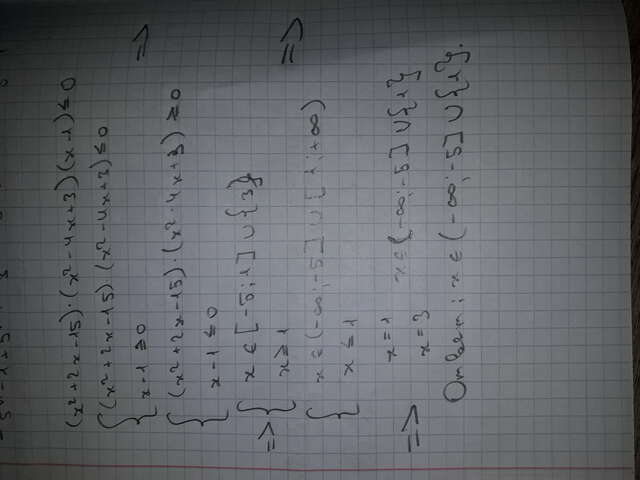 (x²+2x-15)·(x²-4x+3)(x-1)≤0
{ (x²+2x-15)·(x²-4x+3)≤0
x-1≥0
=>
{ (x²+2x-15)·(x²-4x+3)≥0
x-1≤0
=> { x∈[-5;1]∪{3}
x≥1
=>
{ x∈(-∞;-5]∪[1;+∞)
x≤1
=> x=1
x=3
x∈(-∞;-5]∪{1}
Ответ: x∈(-∞;-5]∪{1}.